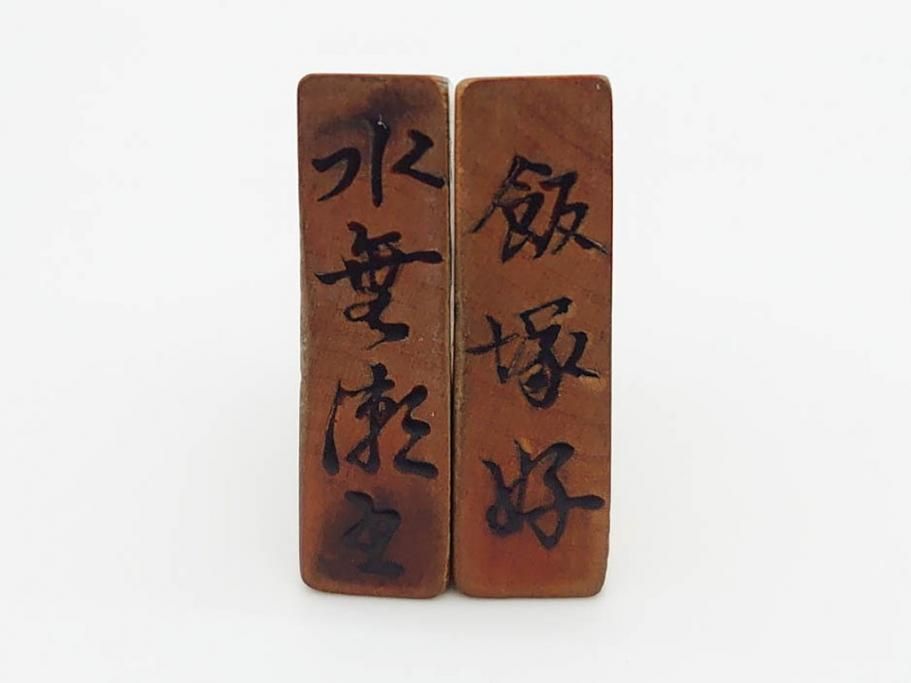 飯塚好
水無瀬